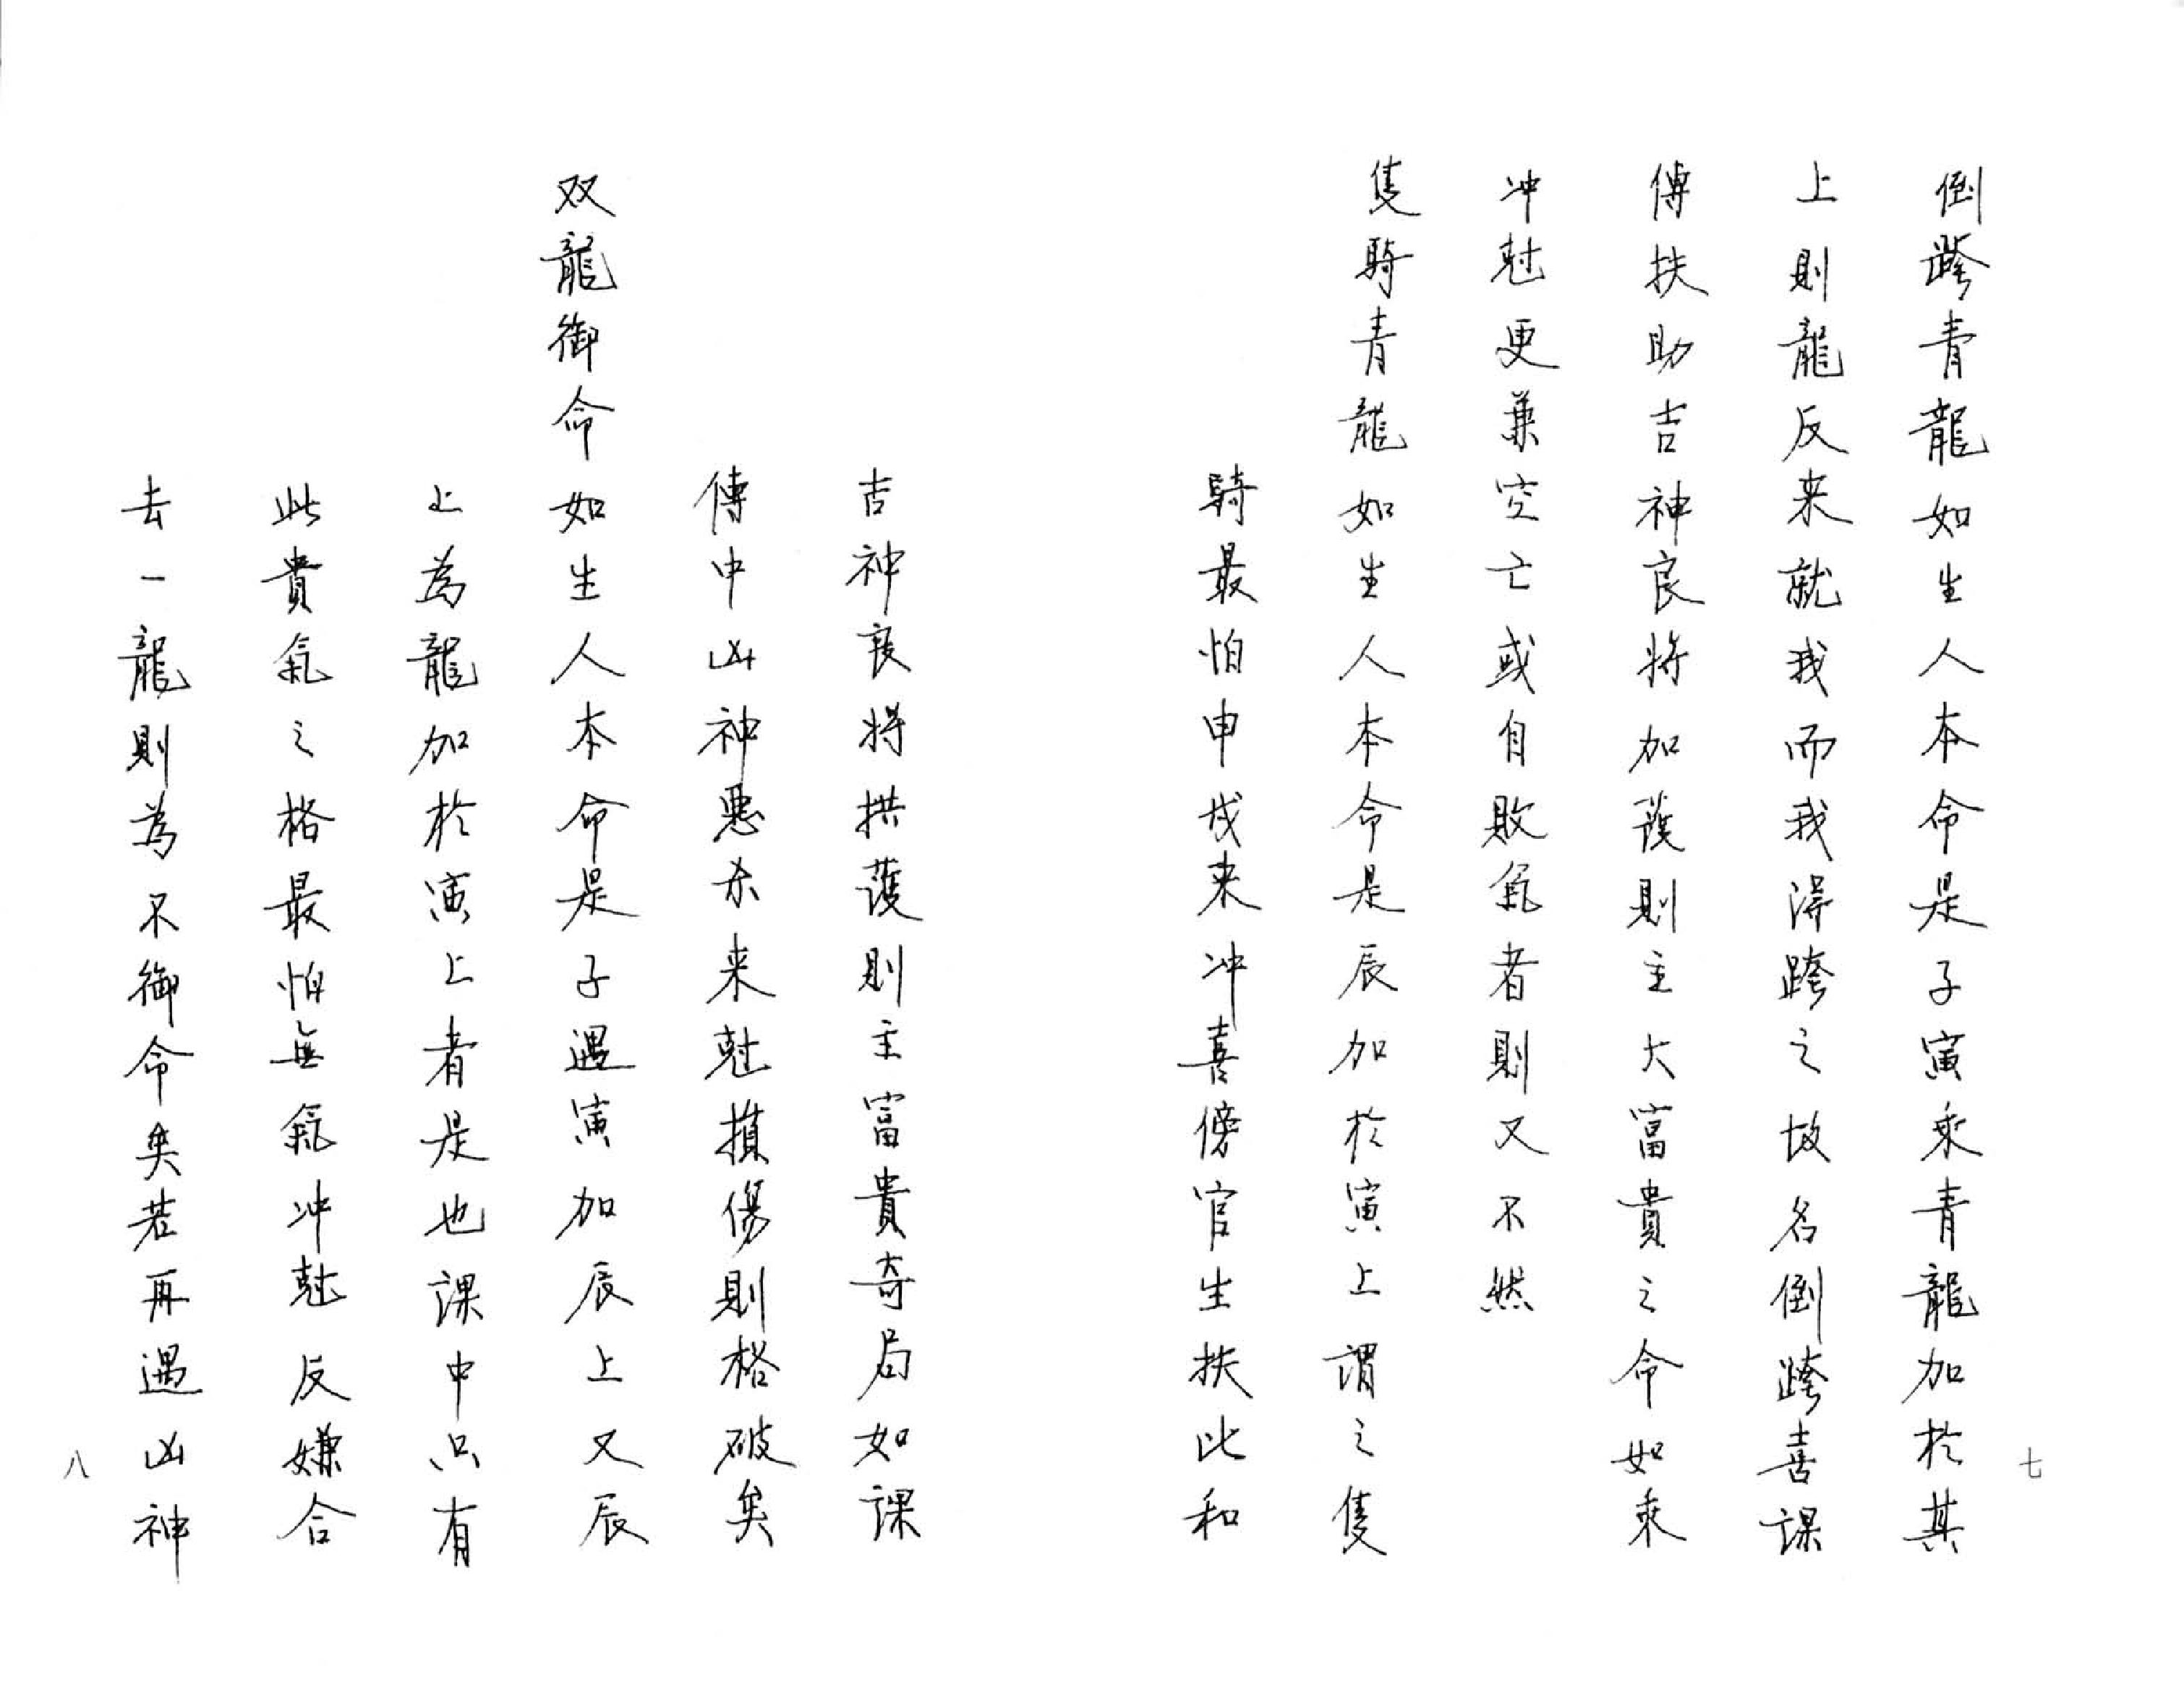 倒跨青龍如生人本命是子寅乘青龍加於其
上則龍反来就我而我得跨之故名倒跨喜課
傳扶助吉神良将加護則主大富貴之命如乘
冲尅更兼空亡或自敗氣者則又不然
隻騎青龍如生人本命是辰加於寅上謂之隻
騎最怕申戌来冲喜傍官生扶比和
七
吉神良将拱護則主富貴奇局如課
傳中凶神惡杀来尅損傷則格破矣
双龍御命如生人本命是子遇寅加辰上又辰
上為龍加於寅上者是也課中只有
此貴氣之格最怕無氣冲尅反嫌合
去一龍則為不御命矣若再遇凶神
八